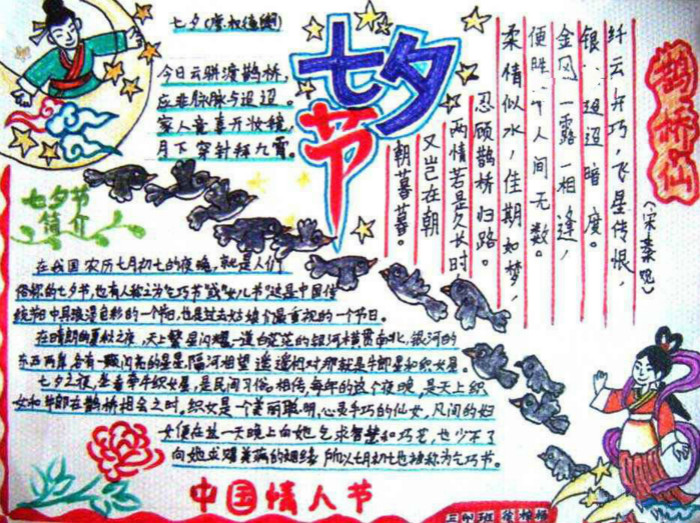 七夕节
七夕(唐·权德舆)
今日云骈渡鹊桥，
应非脉脉与迢迢。
家人竟喜开妆镜，
月下穿针拜九霄。
鹊桥仙
(宋秦观)
纤云弄巧，飞星传恨，
银迢迢暗度。
金风一露一相逢，
便胜人间无数。
柔情似水，佳期如梦，
忍顾鹊桥归路。
两情若是久长时
又岂在朝
朝暮暮。
七夕节
简介
在我国农历七月初七的夜晚，就是人们
俗称的七夕节，也有人称之为"乞巧节"或"女儿节"这是中国传
统节日中具浪漫色彩的一个节日，也是过去姑娘们最重视的一个节日。
在晴朗的夏秋之夜，天上繁星闪耀一道白茫茫的银河横贯南北，银河的
东西两岸，各有一颗闪亮的星星，隔河相望遥遥相对那就是牛郎星和织女星。
七夕之夜，坐看牵牛织女星，是民间习俗，相传，每年的这个夜晚，是天上织
女和牛郎在鹊桥相会之时，织女是个美丽聪明，心灵手巧的仙女，凡间的妇
女便在这一天晚上向她乞求智慧和巧艺，也少不了
向她求赐美满的姻缘所以七月初七也被称为乞巧节。
中国情人节
班